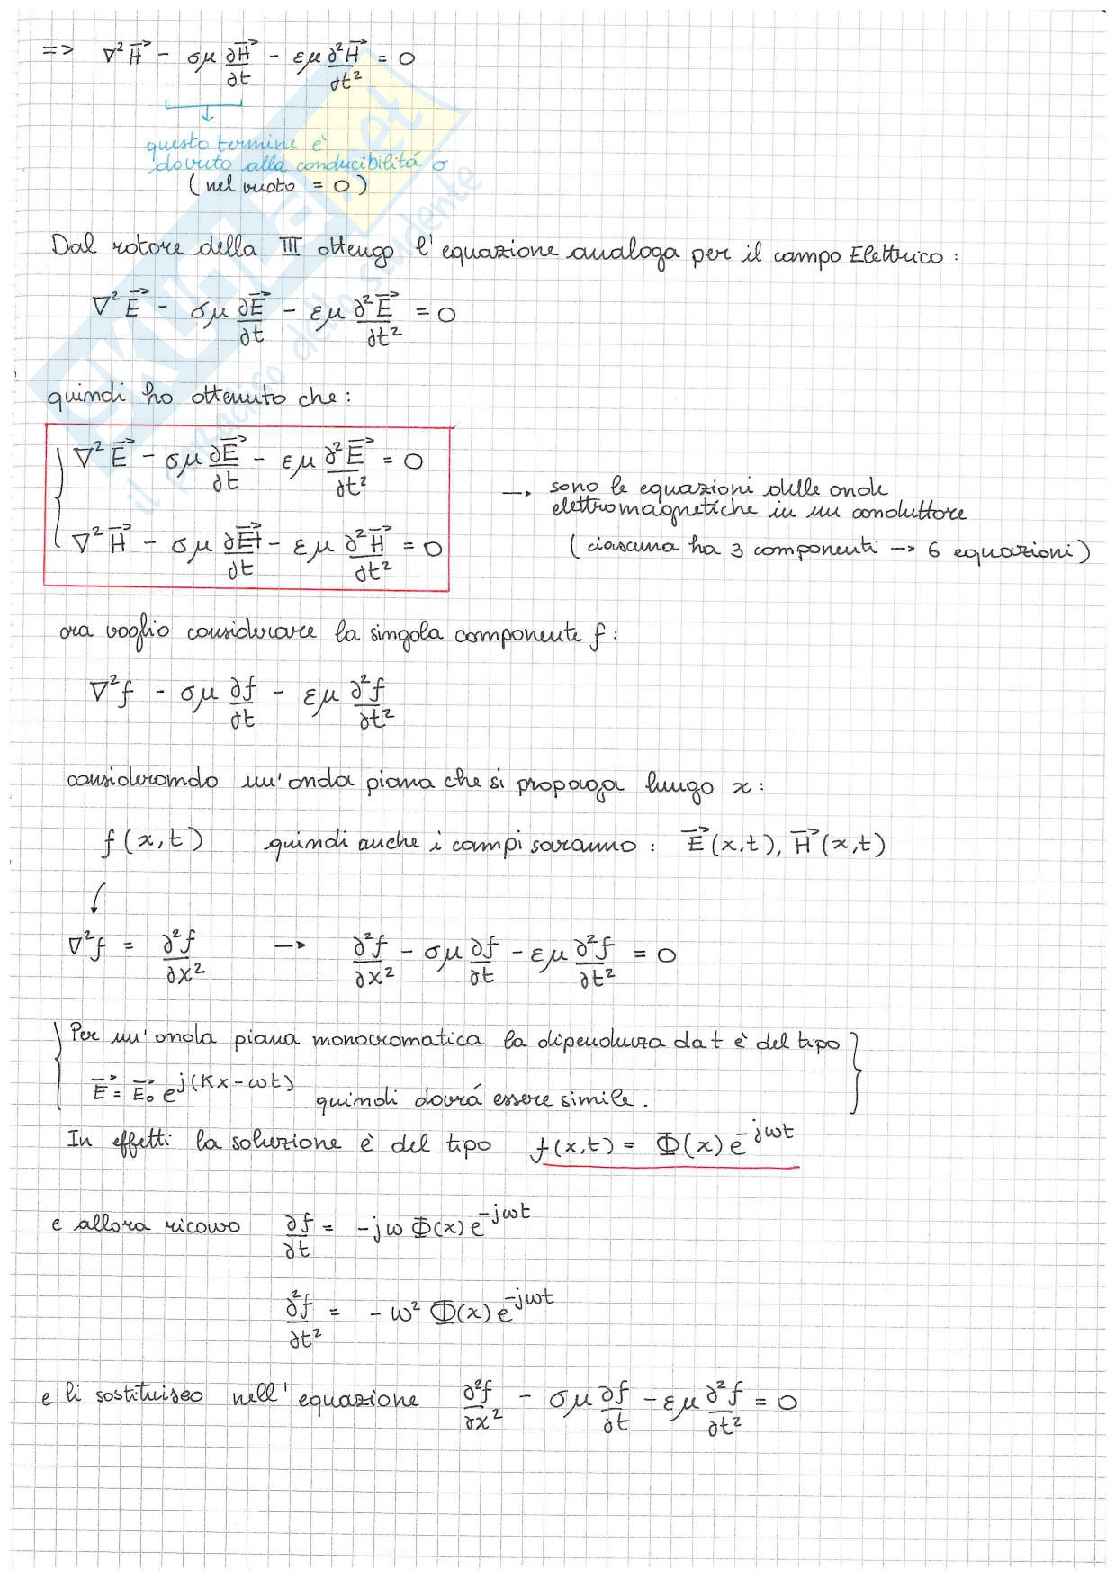 => ∇²H⃗ - σμ ∂H⃗/∂t - εμ ∂²H⃗/∂t² = 0
questo termine è
dovuto alla conducibilitá σ
(nel vuoto = 0)
Dal rotore della III ottengo l'equazione analoga per il campo Elettrico:
∇²E⃗ - σμ ∂E⃗/∂t - εμ ∂²E⃗/∂t² = 0
quindi ho ottenuto che:
∇²E⃗ - σμ ∂E⃗/∂t - εμ ∂²E⃗/∂t² = 0
∇²H⃗ - σμ ∂H⃗/∂t - εμ ∂²H⃗/∂t² = 0
→ sono le equazioni delle onde
elettromagnetiche in un conduttore
(ciascuna ha 3 componenti → 6 equazioni)
ora voglio considerare la singola componente f:
∇²f - σμ ∂f/∂t - εμ ∂²f/∂t²
considerando un'onda piana che si propaga lungo x:
f(x,t) quindi anche i campi saranno: E⃗(x,t), H⃗(x,t)
∇²f = ∂²f/∂x² → ∂²f/∂x² - σμ ∂f/∂t - εμ ∂²f/∂t² = 0
{Per un'onda piana monocromatica la dipendenza da t è del tipo}
E⃗ = E⃗₀ e^j(Kx-ωt) quindi dovrá essere simile.
In effetti la soluzione è del tipo f(x,t) = Φ(x) e^-jωt
e allora ricavo ∂f/∂t = -jω Φ(x) e^-jωt
∂²f/∂t² = -ω² Φ(x) e^-jωt
e li sostituisco nell'equazione ∂²f/∂x² - σμ ∂f/∂t - εμ ∂²f/∂t² = 0